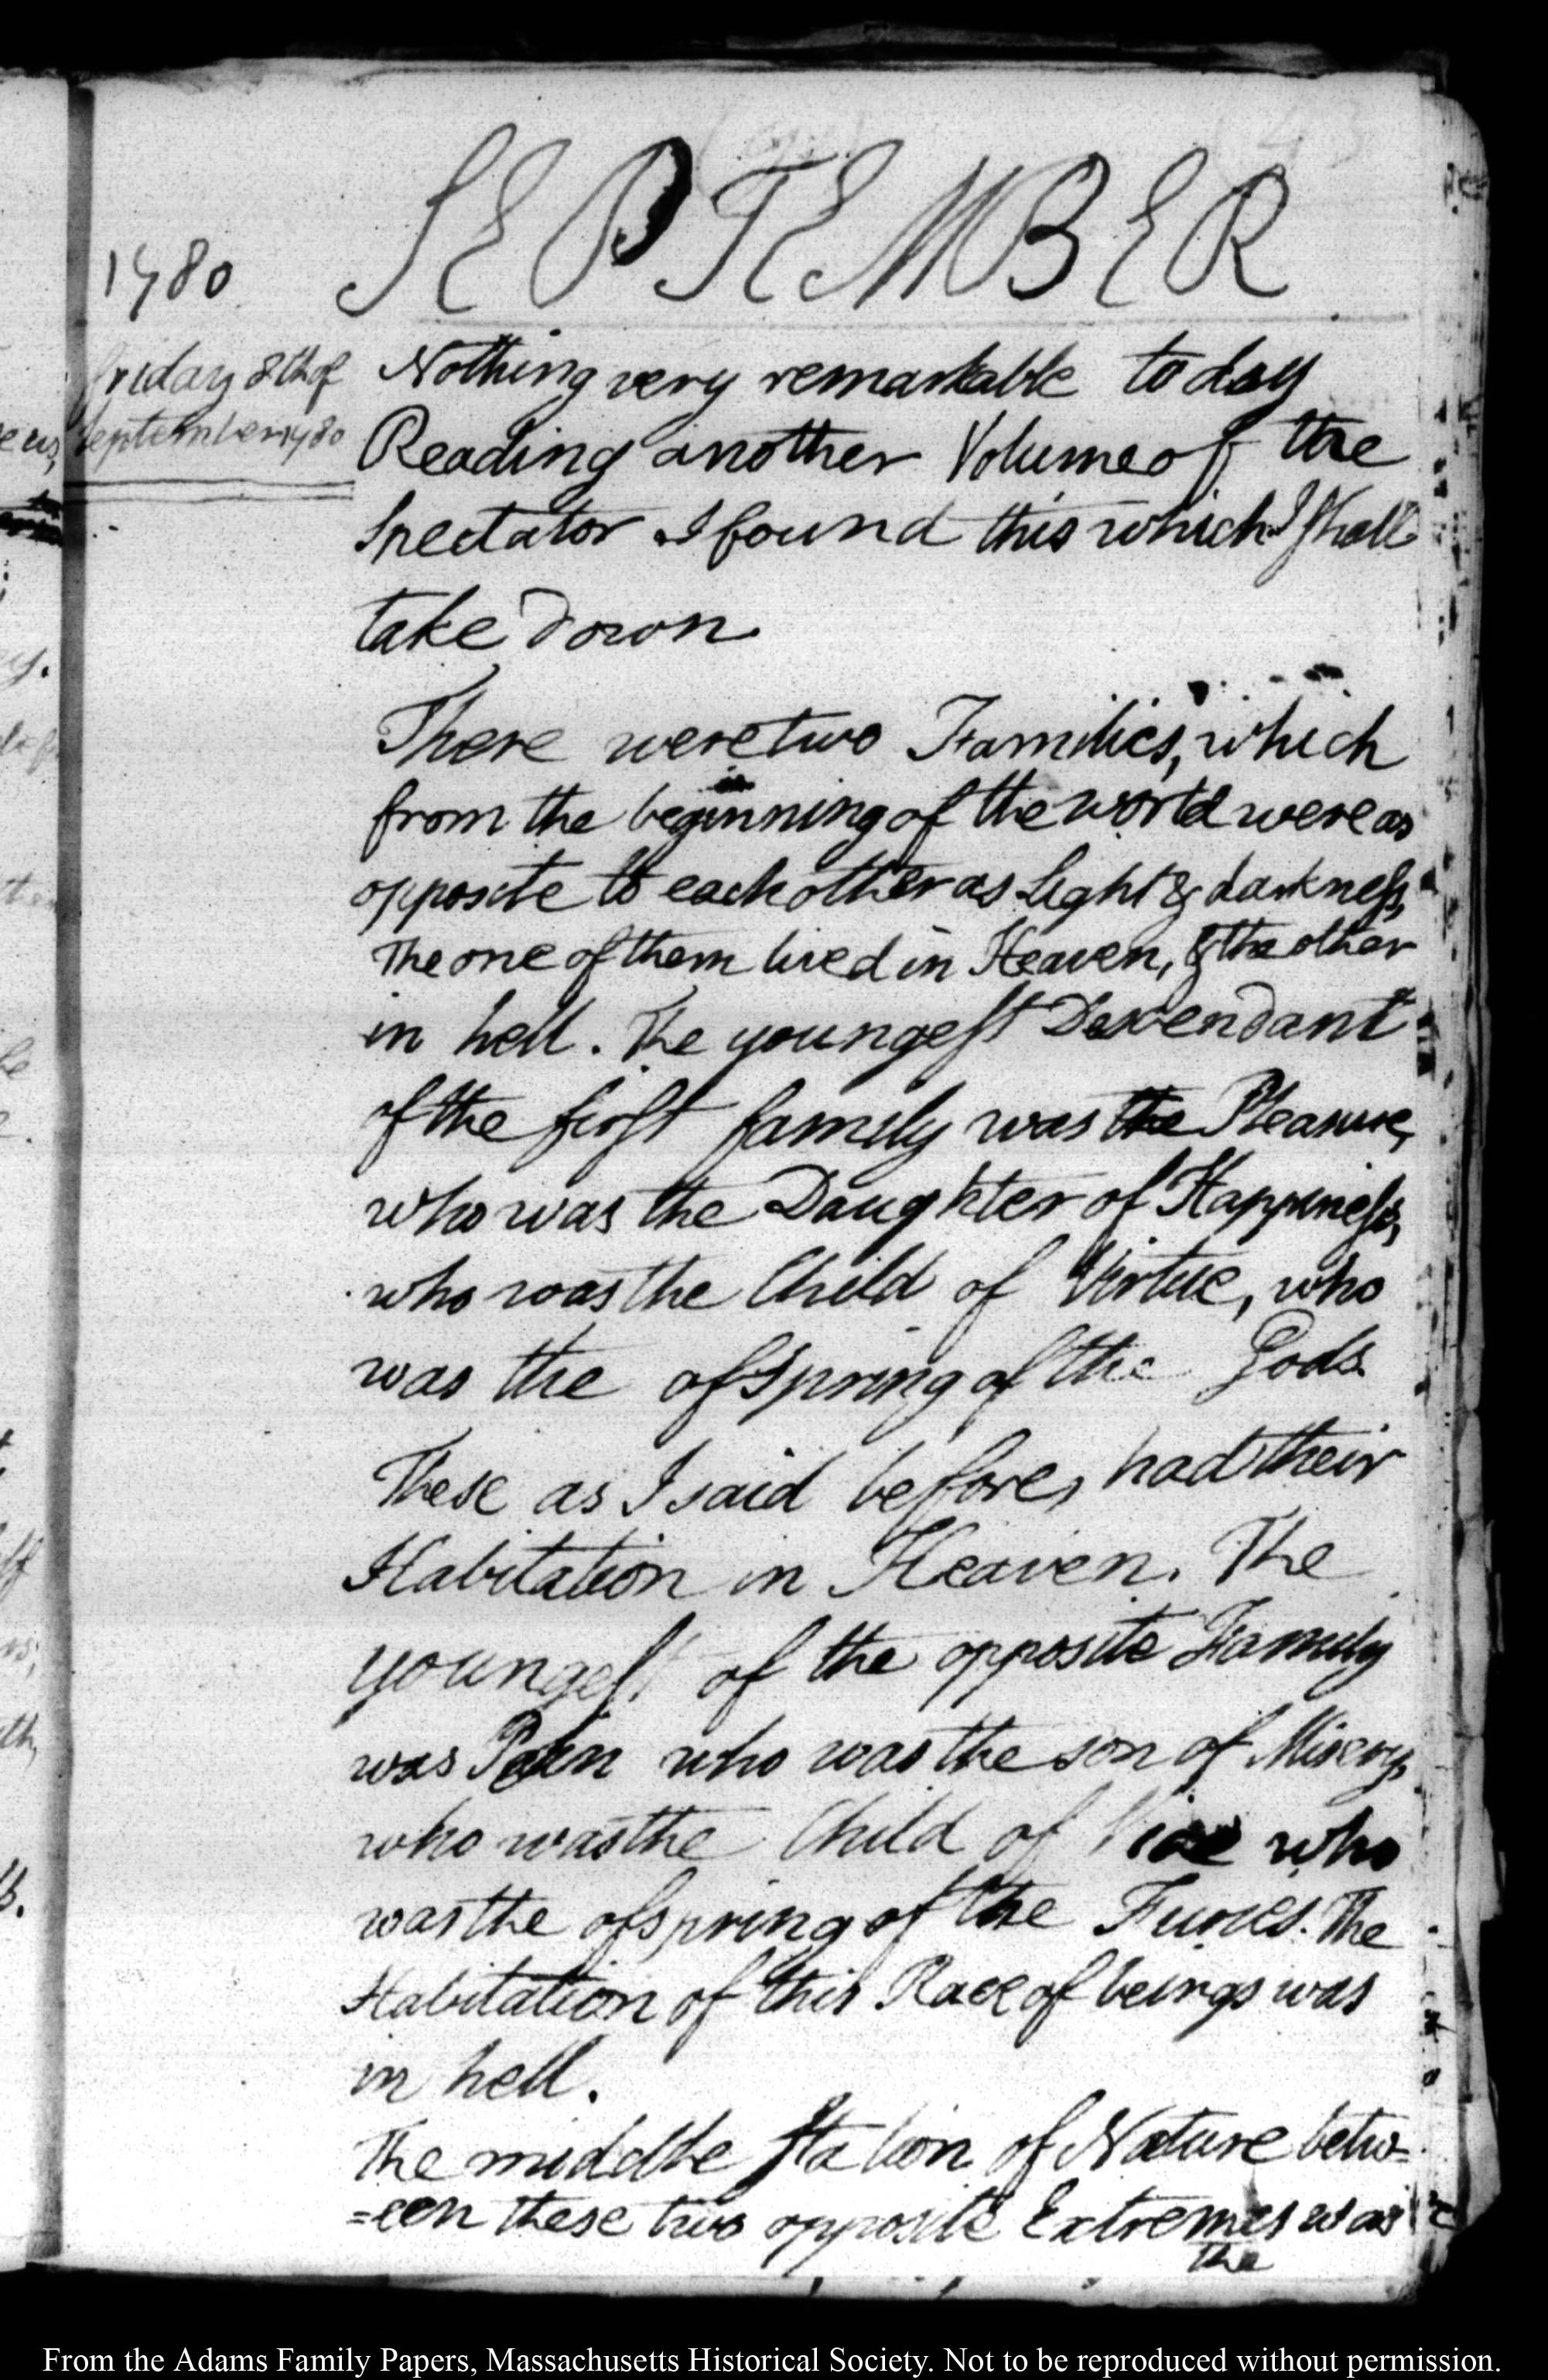 SEPTEMBER
1780
friday 8th of
September 1780
Nothing very remarkable to day
Reading another Volume of the
Spectator I found this which I shall
take down
There were two Families, which
from the beginning of the world were as
opposite to each other as Light & darkness,
The one of them lived in Heaven, & the other
in hell. The youngest Descendant
of the first family was the Pleasure,
who was the Daughter of Happiness,
who was the Child of Virtue, who
was the ofspring of the Gods.
These as I said before, had their
Habitation in Heaven. The
youngest of the opposite Family
was Pain who was the son of Misery,
who was the Child of Vice who
was the ofspring of the Furies. The
Habitation of this Race of beings was
in hell.
The middle station of Nature betw=
=een these two opposite Extremes was
the
From the Adams Family Papers, Massachusetts Historical Society. Not to be reproduced without permission.